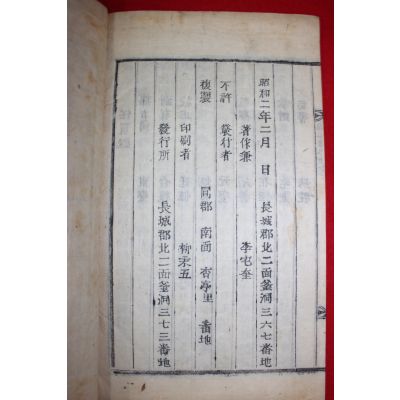 昭和二年二月　日　長城郡北二面釜洞三六七番地
著作兼　李屯奎
不許　發行者
複製　同郡　南面　杏亭里　番地
印刷者　柳末五
發行所　長城郡北二面釜洞三七三番地